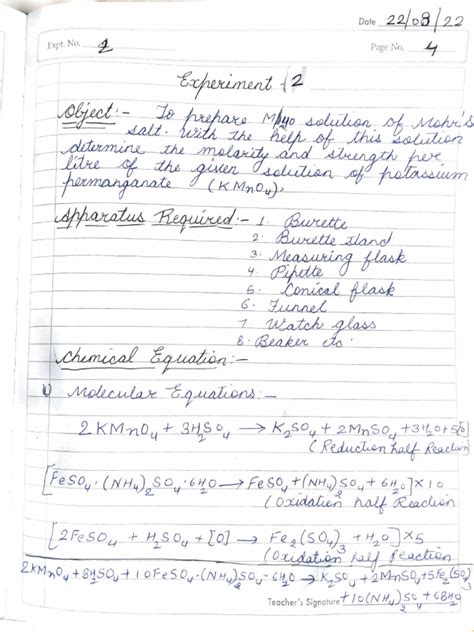 Date 22/08/22
Expt. No. 2
Page No. 4
Experiment - 2
Object :- To prepare M/40 solution of Mohr's
salt. With the help of this solution
determine the molarity and strength per
litre of the given solution of potassium
permanganate (KMnO₄).
Apparatus Required :- 1. Burette
2. Burette stand
3. Measuring flask
4. Pipette
5. Conical flask
6. Funnel
7. Watch glass
8. Beaker etc.
Chemical Equation :-
1) Molecular Equations :-
2KMnO₄ + 3H₂SO₄ → K₂SO₄ + 2MnSO₄ + 3H₂O + 5[O]
(Reduction half Reaction)
[FeSO₄·(NH₄)₂SO₄·6H₂O → FeSO₄ + (NH₄)₂SO₄ + 6H₂O] × 10
(Oxidation half Reaction
[2FeSO₄ + H₂SO₄ + [O] → Fe₂(SO₄)₃ + H₂O] × 5
(Oxidation half reaction
2KMnO₄ + 8H₂SO₄ + 10FeSO₄·(NH₄)₂SO₄·6H₂O → K₂SO₄ + 2MnSO₄ + 5Fe₂(SO₄)₃
Teacher's Signature + 10(NH₄)₂SO₄ + 68H₂O